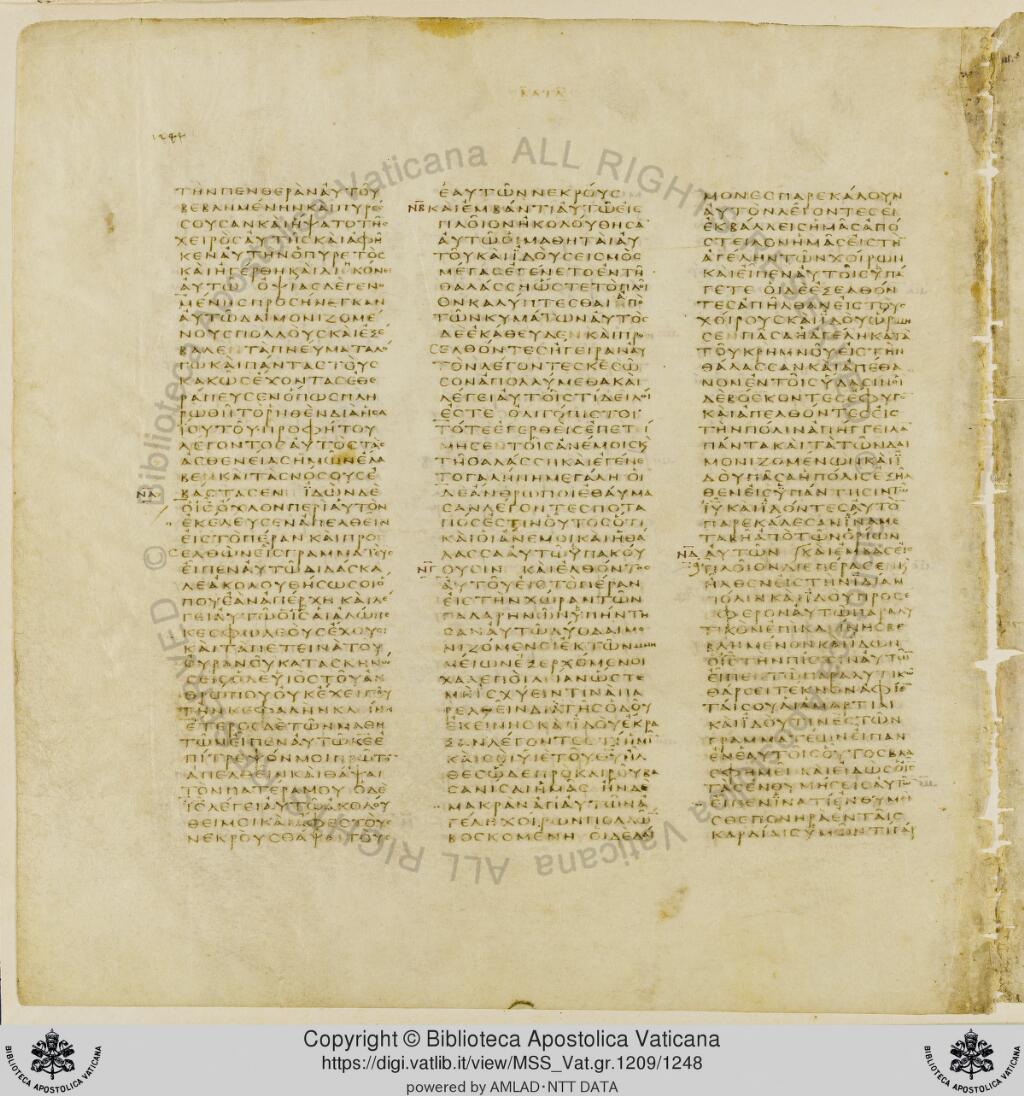 ΚΑΤΑ
1244
ΤΗΝΠΕΝΘΕΡΑΝΑΥΤΟΥ
ΒΕΒΛΗΜΕΝΗΝΚΑΙΠΥΡΕ
ΣΟΥΣΑΝΚΑΙΗΨΑΤΟΤΗΣ
ΧΕΙΡΟΣΑΥΤΗΣΚΑΙΑΦΗ
ΚΕΝΑΥΤΗΝΟΠΥΡΕΤΟΣ
ΚΑΙΗΓΕΡΘΗΚΑΙΔΙΗΚΟΝΕΙ
ΑΥΤΩ ΟΨΙΑΣΔΕΓΕΝΟ
ΜΕΝΗΣΠΡΟΣΗΝΕΓΚΑΝ
ΑΥΤΩΔΑΙΜΟΝΙΖΟΜΕ
ΝΟΥΣΠΟΛΛΟΥΣΚΑΙΕΞΕ
ΒΑΛΕΝΤΑΠΝΕΥΜΑΤΑΛΟ
ΓΩΚΑΙΠΑΝΤΑΣΤΟΥΣ
ΚΑΚΩΣΕΧΟΝΤΑΣΕΘΕ
ΡΑΠΕΥΣΕΝΟΠΩΣΠΛΗ
ΡΩΘΗΤΟΡΗΘΕΝΔΙΑΗΣΑ
ΙΟΥΤΟΥΠΡΟΦΗΤΟΥ
ΛΕΓΟΝΤΟΣΑΥΤΟΣΤΑΣ
ΑΣΘΕΝΕΙΑΣΗΜΩΝΕΛΑ
ΒΕΝΚΑΙΤΑΣΝΟΣΟΥΣΕ
ΝΑ ΒΑΣΤΑΣΕΝ ΙΔΩΝΔΕ
ΟΙΣΟΧΛΟΝΠΕΡΙΑΥΤΟΝ
ΕΚΕΛΕΥΣΕΝΑΠΕΛΘΕΙΝ
ΕΙΣΤΟΠΕΡΑΝΚΑΙΠΡΟΣ
ΕΛΘΩΝΕΙΣΓΡΑΜΜΑΤΕΥΣ
ΕΙΠΕΝΑΥΤΩΔΙΔΑΣΚΑ
ΛΕΑΚΟΛΟΥΘΗΣΩΣΟΙΟ
ΠΟΥΕΑΝΑΠΕΡΧΗΚΑΙΛΕ
ΓΕΙΑΥΤΩΟΙΣΑΙΑΛΩΠΕ
ΚΕΣΦΩΛΕΟΥΣΕΧΟΥΣΙ
ΚΑΙΤΑΠΕΤΕΙΝΑΤΟΥ
ΟΥΡΑΝΟΥΚΑΤΑΣΚΗΝΩ
ΣΕΙΣΟΔΕΥΙΟΣΤΟΥΑΝ
ΘΡΩΠΟΥΟΥΚΕΧΕΙΠΟΥ
ΤΗΝΚΕΦΑΛΗΝΚΛΙΝΗ
ΕΤΕΡΟΣΔΕΤΩΝΜΑΘΗ
ΤΩΝΕΙΠΕΝΑΥΤΩΚΕΕ
ΠΙΤΡΕΨΟΝΜΟΙΠΡΩΤΟ
ΑΠΕΛΘΕΙΝΚΑΙΘΑΨΑΙ
ΤΟΝΠΑΤΕΡΑΜΟΥ ΟΔΕ
ΙΣΛΕΓΕΙΑΥΤΩΑΚΟΛΟΥ
ΘΕΙΜΟΙΚΑΙΑΦΕΣΤΟΥΣ
ΝΕΚΡΟΥΣΘΑΨΑΙΤΟΥΣ
ΕΑΥΤΩΝΝΕΚΡΟΥΣ
ΝΒ ΚΑΙΕΜΒΑΝΤΙΑΥΤΩΕΙΣ
ΠΛΟΙΟΝΗΚΟΛΟΥΘΗΣΑ
ΑΥΤΩΟΙΜΑΘΗΤΑΙΑΥ
ΤΟΥΚΑΙΙΔΟΥΣΕΙΣΜΟΣ
ΜΕΓΑΣΕΓΕΝΕΤΟΕΝΤΗ
ΘΑΛΑΣΣΗΩΣΤΕΤΟΠΛΟΙ
ΟΝΚΑΛΥΠΤΕΣΘΑΙΥΠΟ
ΤΩΝΚΥΜΑΤΩΝΑΥΤΟΣ
ΔΕΕΚΑΘΕΥΔΕΝΚΑΙΠΡΟ
ΣΕΛΘΟΝΤΕΣΗΓΕΙΡΑΝΑΥ
ΤΟΝΛΕΓΟΝΤΕΣΚΕΣΩ
ΣΟΝΑΠΟΛΛΥΜΕΘΑΚΑΙ
ΛΕΓΕΙΑΥΤΟΙΣΤΙΔΕΙΛΟΙ
ΕΣΤΕ ΟΛΙΓΟΠΙΣΤΟΙ
ΤΟΤΕΕΓΕΡΘΕΙΣΕΠΕΤΙ
ΜΗΣΕΝΤΟΙΣΑΝΕΜΟΙΣΚΑΙ
ΤΗΘΑΛΑΣΣΗΚΑΙΕΓΕΝΕ
ΤΟΓΑΛΗΝΗΜΕΓΑΛΗ ΟΙ
ΔΕΑΝΘΡΩΠΟΙΕΘΑΥΜΑ
ΣΑΝΛΕΓΟΝΤΕΣΠΟΤΑ
ΠΟΣΕΣΤΙΝΟΥΤΟΣΟΤΙ
ΚΑΙΟΙΑΝΕΜΟΙΚΑΙΗΘΑ
ΛΑΣΣΑΑΥΤΩΥΠΑΚΟΥ
ΝΓ ΟΥΣΙΝ ΚΑΙΕΛΘΟΝΤΟΣ
ΑΥΤΟΥΕΙΣΤΟΠΕΡΑΝ
ΕΙΣΤΗΝΧΩΡΑΝΤΩΝ
ΓΑΔΑΡΗΝΩΝΥΠΗΝΤΗ
ΣΑΝΑΥΤΩΔΥΟΔΑΙΜΟ
ΝΙΖΟΜΕΝΟΙΕΚΤΩΝΜΝΗ
ΜΕΙΩΝΕΞΕΡΧΟΜΕΝΟΙ
ΧΑΛΕΠΟΙΛΙΑΝΩΣΤΕ
ΜΗΙΣΧΥΕΙΝΤΙΝΑΠΑ
ΡΕΛΘΕΙΝΔΙΑΤΗΣΟΔΟΥ
ΕΚΕΙΝΗΣΚΑΙΙΔΟΥΕΚΡΑ
ΞΑΝΛΕΓΟΝΤΕΣΤΙΗΜΙ
ΚΑΙΣΟΙΥΙΕΤΟΥΘΥΗΛ
ΘΕΣΩΔΕΠΡΟΚΑΙΡΟΥΒΑ
ΣΑΝΙΣΑΙΗΜΑΣ ΗΝΔΕ
ΜΑΚΡΑΝΑΠΑΥΤΩΝΑ
ΓΕΛΗΧΟΙΡΩΝΠΟΛΛΩ
ΒΟΣΚΟΜΕΝΗ ΟΙΔΕΔΑΙ
ΜΟΝΕΣΠΑΡΕΚΑΛΟΥΝ
ΑΥΤΟΝΛΕΓΟΝΤΕΣΕΙ
ΕΚΒΑΛΛΕΙΣΗΜΑΣΑΠΟ
ΣΤΕΙΛΟΝΗΜΑΣΕΙΣΤΗ
ΑΓΕΛΗΝΤΩΝΧΟΙΡΩΝ
ΚΑΙΕΙΠΕΝΑΥΤΟΙΣΥΠΑ
ΓΕΤΕ ΟΙΔΕΕΞΕΛΘΟΝ
ΤΕΣΑΠΗΛΘΑΝΕΙΣΤΟΥΣ
ΧΟΙΡΟΥΣΚΑΙΙΔΟΥΩΡΜΗ
ΣΕΝΠΑΣΑΗΑΓΕΛΗΚΑΤΑ
ΤΟΥΚΡΗΜΝΟΥΕΙΣΤΗΝ
ΘΑΛΑΣΣΑΝΚΑΙΑΠΕΘΑ
ΝΟΝΕΝΤΟΙΣΥΔΑΣΙΝΟΙ
ΔΕΒΟΣΚΟΝΤΕΣΕΦΥΓΟ
ΚΑΙΑΠΕΛΘΟΝΤΕΣΕΙΣ
ΤΗΝΠΟΛΙΝΑΠΗΓΓΕΙΛΑ
ΠΑΝΤΑΚΑΙΤΑΤΩΝΔΑΙ
ΜΟΝΙΖΟΜΕΝΩΝΚΑΙΙ
ΔΟΥΠΑΣΑΗΠΟΛΙΣΕΞΗΛ
ΘΕΝΕΙΣΥΠΑΝΤΗΣΙΝΤΟΥ
ΙΥΚΑΙΙΔΟΝΤΕΣΑΥΤΟ
ΠΑΡΕΚΑΛΕΣΑΝΙΝΑΜΕ
ΤΑΒΗΑΠΟΤΩΝΟΡΙΩΝ
ΝΔ ΑΥΤΩΝ ΚΑΙΕΜΒΑΣΕΙΣ
ΠΛΟΙΟΝΔΙΕΠΕΡΑΣΕΝ
ΗΛΘΕΝΕΙΣΤΗΝΙΔΙΑΝ
ΠΟΛΙΝΚΑΙΙΔΟΥΠΡΟΣΕ
ΦΕΡΟΝΑΥΤΩΠΑΡΑΛΥ
ΤΙΚΟΝΕΠΙΚΛΙΝΗΣΒΕ
ΒΛΗΜΕΝΟΝΚΑΙΙΔΩΝ
ΟΙΣΤΗΝΠΙΣΤΙΝΑΥΤΩ
ΕΙΠΕΝΤΩΠΑΡΑΛΥΤΙΚΩ
ΘΑΡΣΕΙΤΕΚΝΟΝΑΦΙΕ
ΤΑΙΣΟΥΑΙΑΜΑΡΤΙΑΙ
ΚΑΙΙΔΟΥΤΙΝΕΣΤΩΝ
ΓΡΑΜΜΑΤΕΩΝΕΙΠΑΝ
ΕΝΕΑΥΤΟΙΣΟΥΤΟΣΒΛΑ
ΣΦΗΜΕΙ ΚΑΙΕΙΔΩΣΟΙΣ
ΤΑΣΕΝΘΥΜΗΣΕΙΣΑΥΤΩ
ΕΙΠΕΝΙΝΑΤΙΕΝΘΥΜΕΙ
ΣΘΕΠΟΝΗΡΑΕΝΤΑΙΣ
ΚΑΡΔΙΑΙΣΥΜΩΝΤΙΓΑΡ
Copyright © Biblioteca Apostolica Vaticana
https://digi.vatlib.it/view/MSS_Vat.gr.1209/1248
powered by AMLAD·NTT DATA